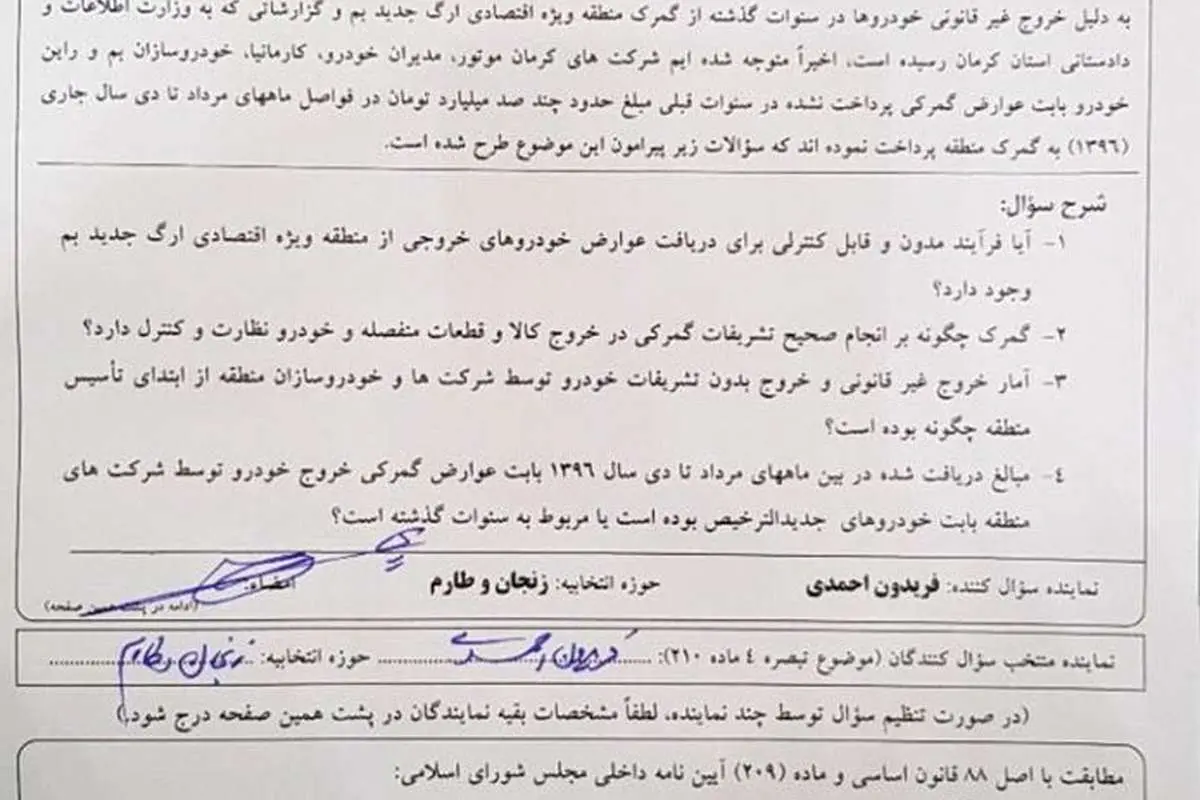 به دلیل خروج غیر قانونی خودروها در سنوات گذشته از گمرک منطقه ویژه اقتصادی ارگ جدید بم و گزارشاتی که به وزارت اطلاعات و
دادستانی استان کرمان رسیده است، اخیراً متوجه شده ایم شرکت های کرمان موتور، مدیران خودرو، کارمانیا، خودروسازان بم و راین
خودرو بابت عوارض گمرکی پرداخت نشده در سنوات قبلی مبلغ حدود چند صد میلیارد تومان در فواصل ماههای مرداد تا دی سال جاری
(۱۳۹۶) به گمرک منطقه پرداخت نموده اند که سؤالات زیر پیرامون این موضوع طرح شده است.
شرح سؤال:
۱- آیا فرآیند مدون و قابل کنترلی برای دریافت عوارض خودروهای خروجی از منطقه ویژه اقتصادی ارگ جدید بم
وجود دارد؟
۲- گمرک چگونه بر انجام صحیح تشریفات گمرکی در خروج کالا و قطعات منفصله و خودرو نظارت و کنترل دارد؟
۳- آمار خروج غیر قانونی و خروج بدون تشریفات خودرو توسط شرکت ها و خودروسازان منطقه از ابتدای تأسیس
منطقه چگونه بوده است؟
٤- مبالغ دریافت شده در بین ماههای مرداد تا دی سال ۱۳۹۶ بابت عوارض گمرکی خروج خودرو توسط شرکت های
منطقه بابت خودروهای جدیدالترخیص بوده است یا مربوط به سنوات گذشته است؟
نماینده سؤال کننده: فریدون احمدی حوزه انتخابیه: زنجان و طارم امضاء:
(ادامه در پشت همین صفحه)
نماینده منتخب سؤال کنندگان (موضوع تبصره ٤ ماده ۲۱۰): فریدون احمدی حوزه انتخابیه: زنجان و طارم
(در صورت تنظیم سؤال توسط چند نماینده، لطفاً مشخصات بقیه نمایندگان در پشت همین صفحه درج شود.)
مطابقت با اصل ۸۸ قانون اساسی و ماده (۲۰۹) آیین نامه داخلی مجلس شورای اسلامی: